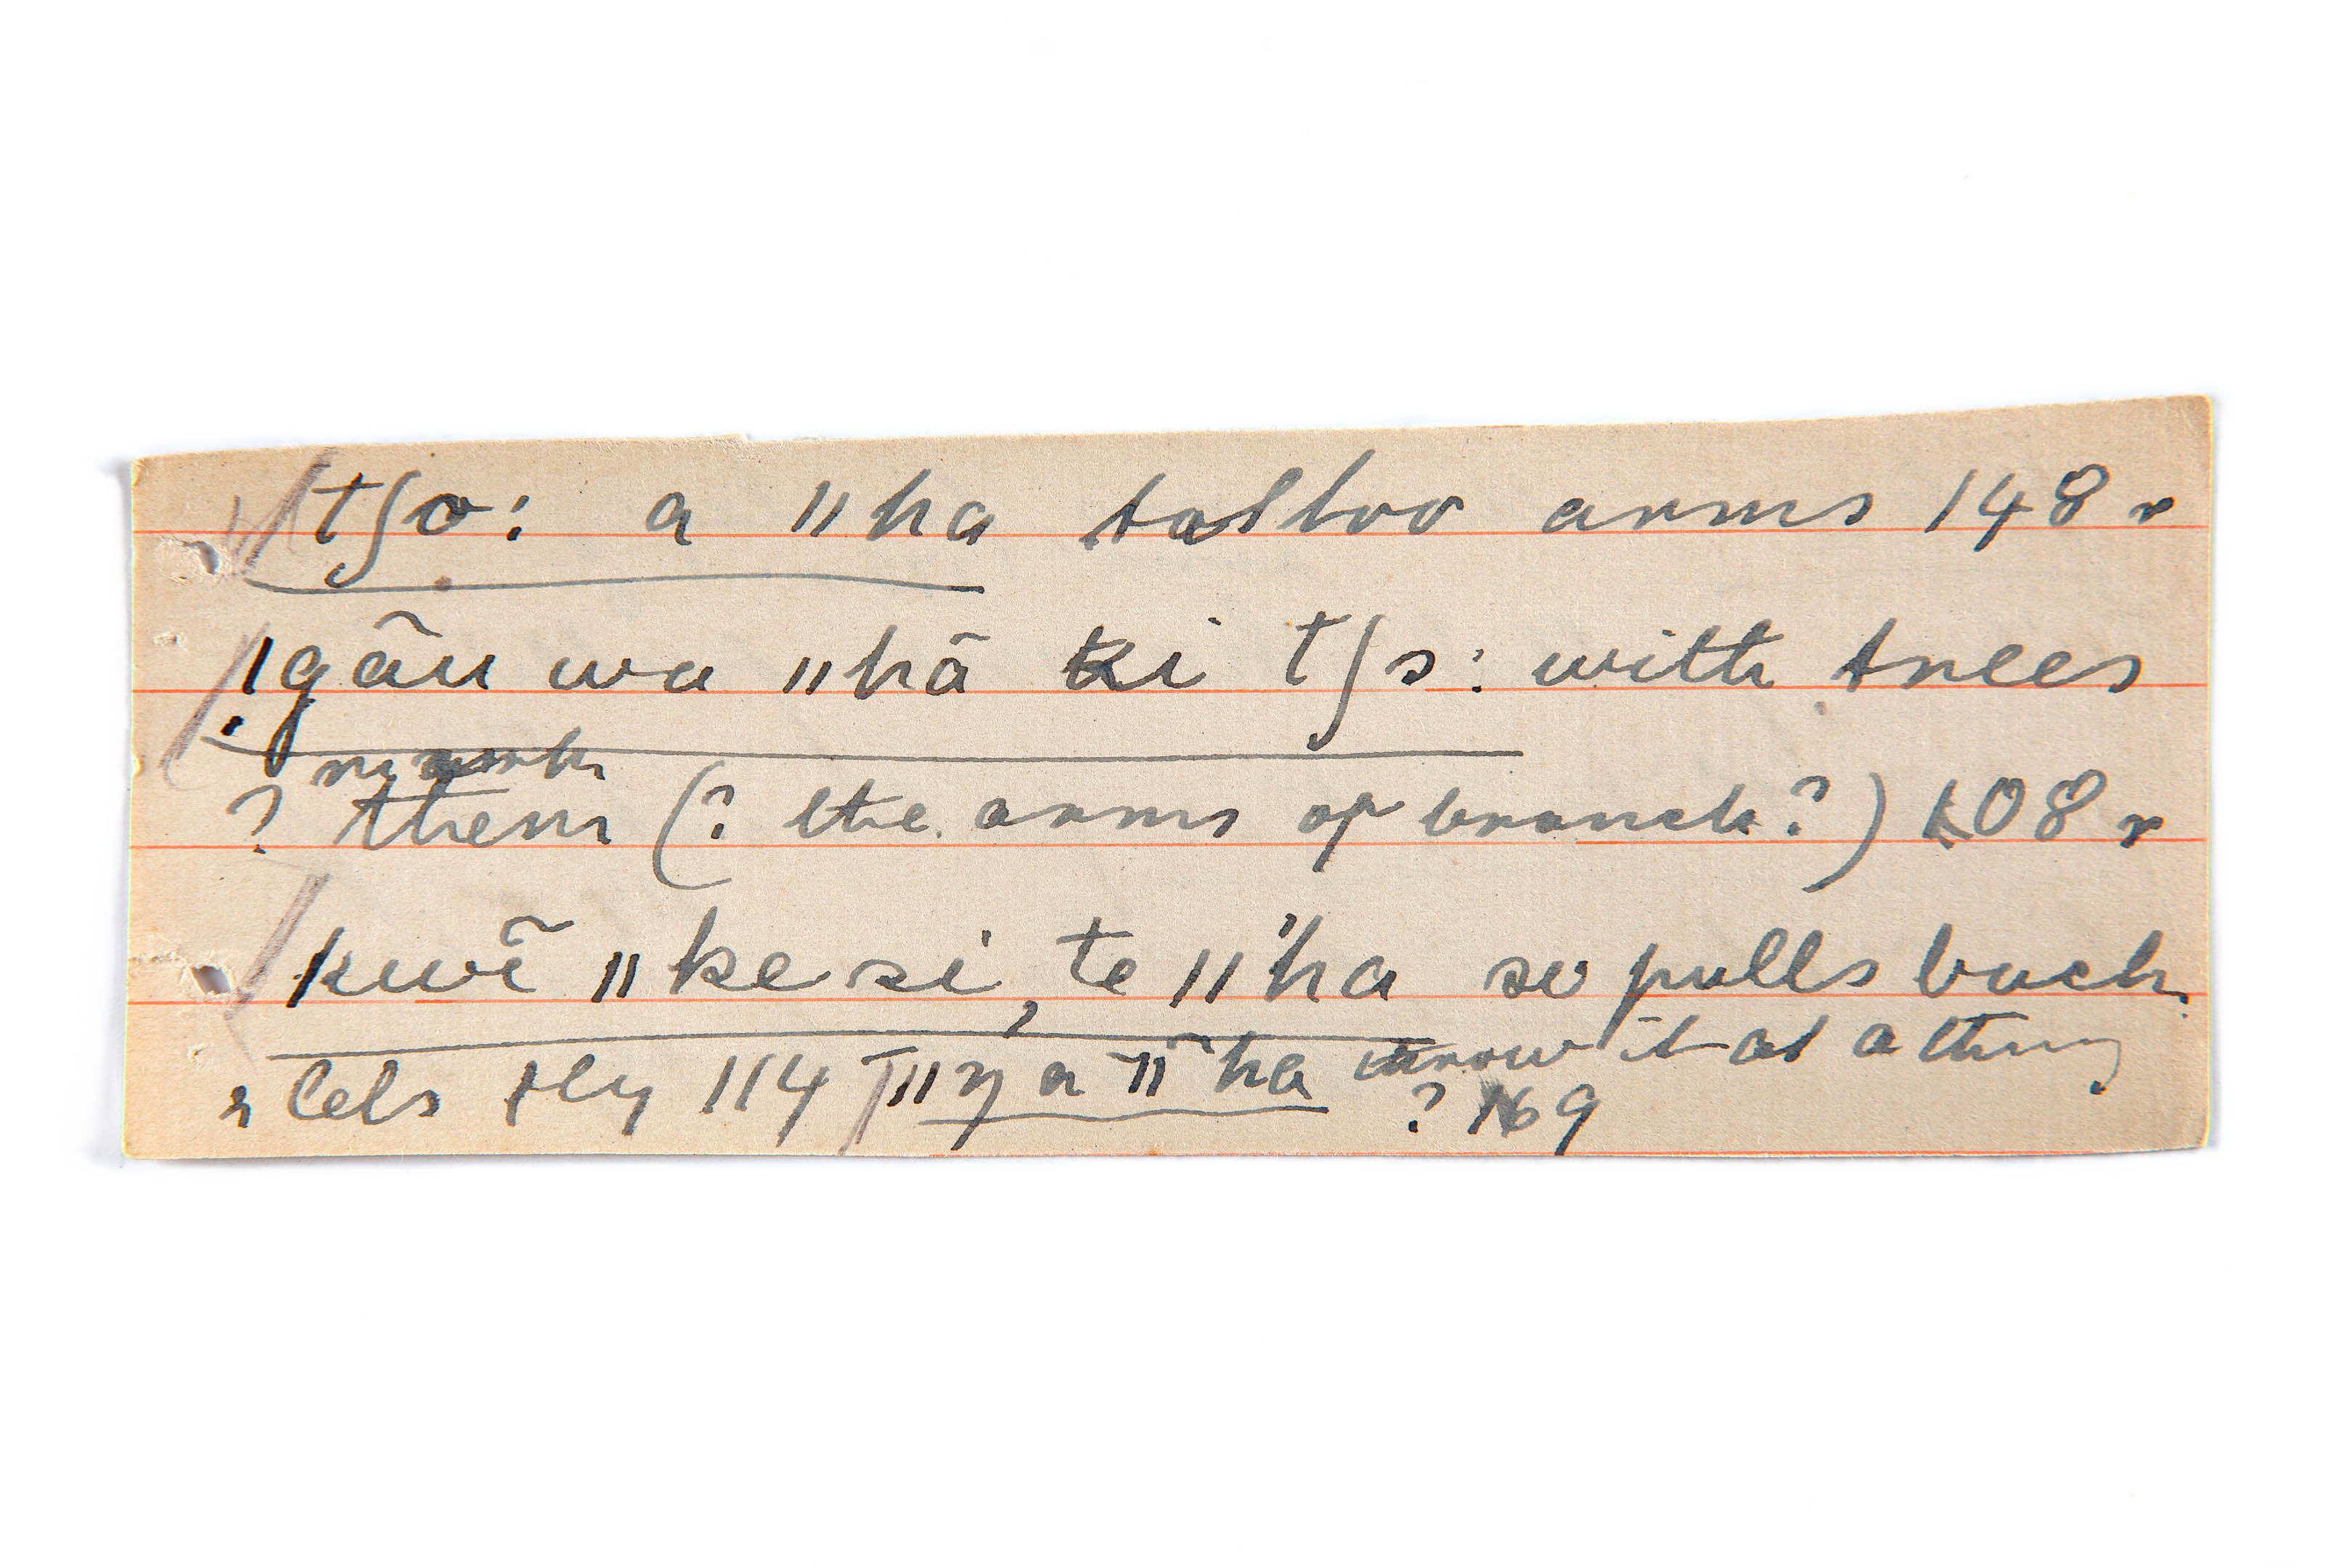 tʃo: a ǁha tattoo arms 148 r
!gãu wa ǁhā ki tʃɔ: with trees
mark
? them (? the arms of branch?) 108 r
kwĩ ǁke si, te ǁ'ha so pulls back
& lets fly 114 ǁŋ a ǁ ha throw it at a thing
? 169